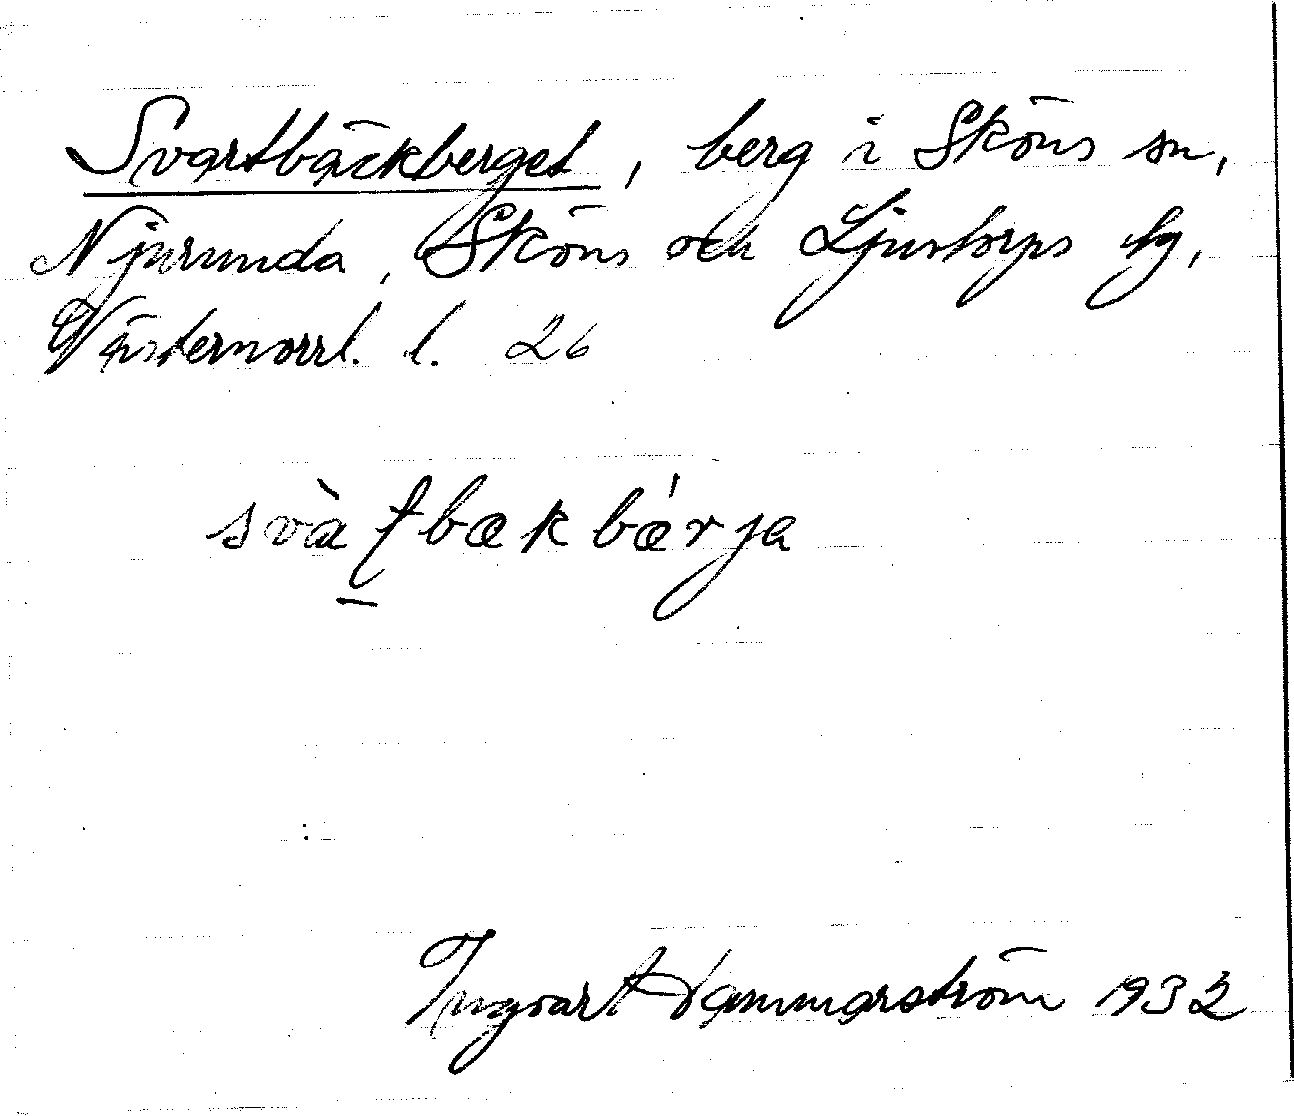 Svartbäckberget, berg i Sköns sn,
Njurunda, Sköns och Ljustorps tg,
Västernorrl. l. 26
svàƭbækbǽrja
Ingvar Hammarström 1932